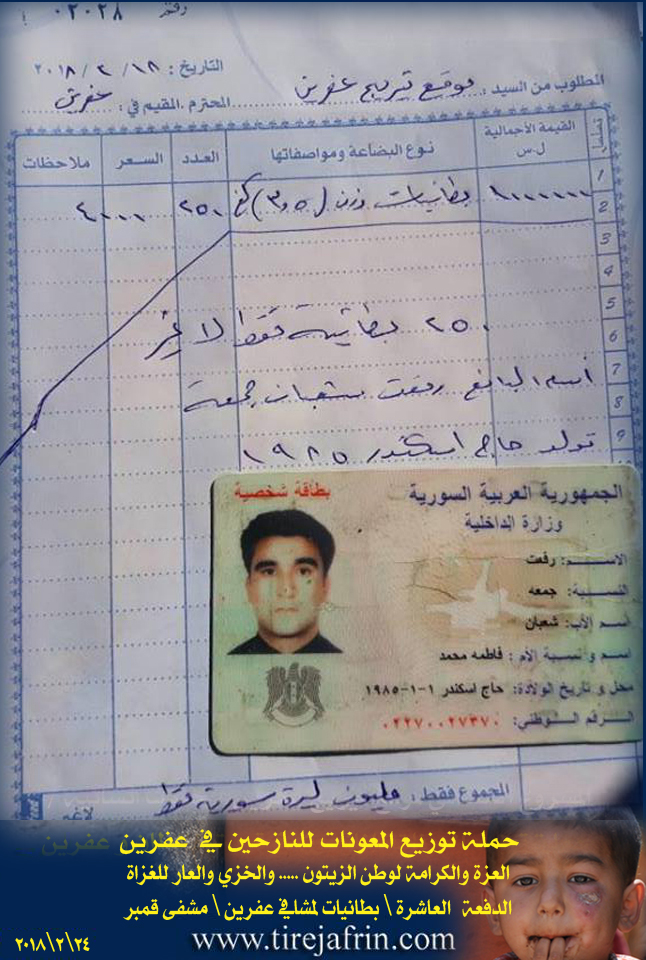 رقم ٠٢٠٢٨
التاريخ : ١٨ / ٢ / ٢٠١٨
المطلوب من السيد : موقع تيريج عفرين المحترم .المقيم في : عفرين
تسلسل القيمة الأجمالية ل.س نوع البضاعة ومواصفاتها العدد السعر ملاحظات
1
2 ١٠٠٠٠٠٠ بطانيات وزن (٣,٥) كغ ٢٥٠ ٤٠٠٠
3
4
5
6 ٢٥٠ بطانية فقط لا غير
7 اسم البائع رفعت شعبان جمعة
8
9 تولد حاج اسكندر ١٩٨٥
الجمهورية العربية السورية
بطاقة شخصية
وزارة الداخلية
الاســـم: رفعت
النسبـة: جمعه
اسم الأب: شعبان
اسم و نسبة الأم : فاطمه محمد
محل و تاريخ الولادة: حاج اسكندر ١-١-١٩٨٥
الرقم الوطني: ٠٢٢٧٠٠٢٧٣٧٠
المجموع فقط : مليون ليرة سورية فقط لاغير
حملة توزيع المعونات للنازحين في عفرين
العزة والكرامة لوطن الزيتون ..... والخزي والعار للغزاة
الدفعة العاشرة \ بطانيات لمشافي عفرين \ مشفى قمبر
٢٠١٨\٢\٢٤
www.tirejafrin.com